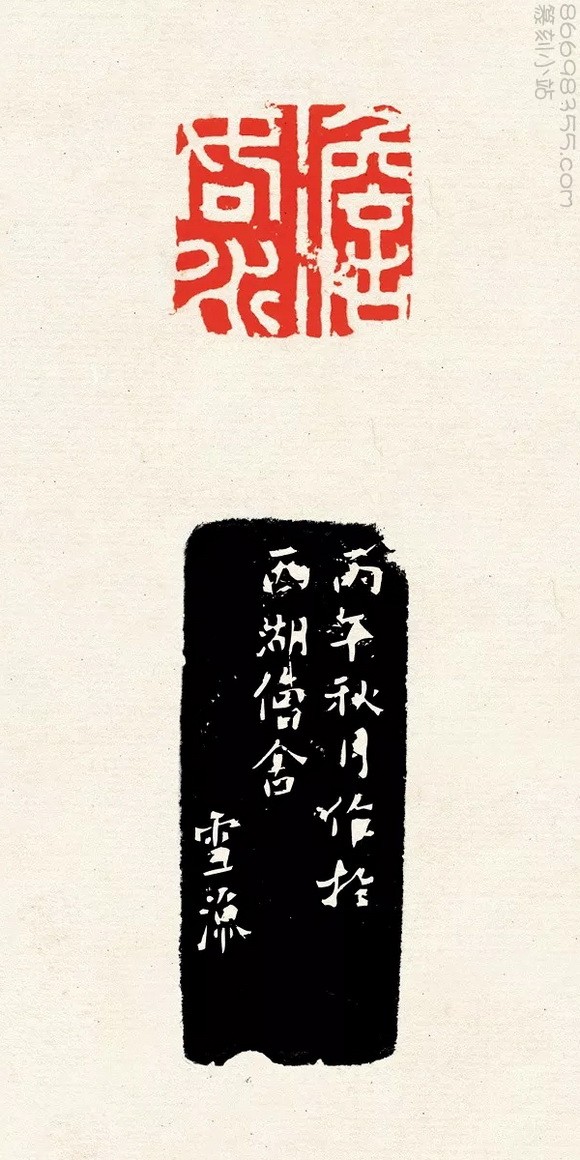 丙午秋月作於
西湖僧舍
雪漁
86698355.com
篆刻小站